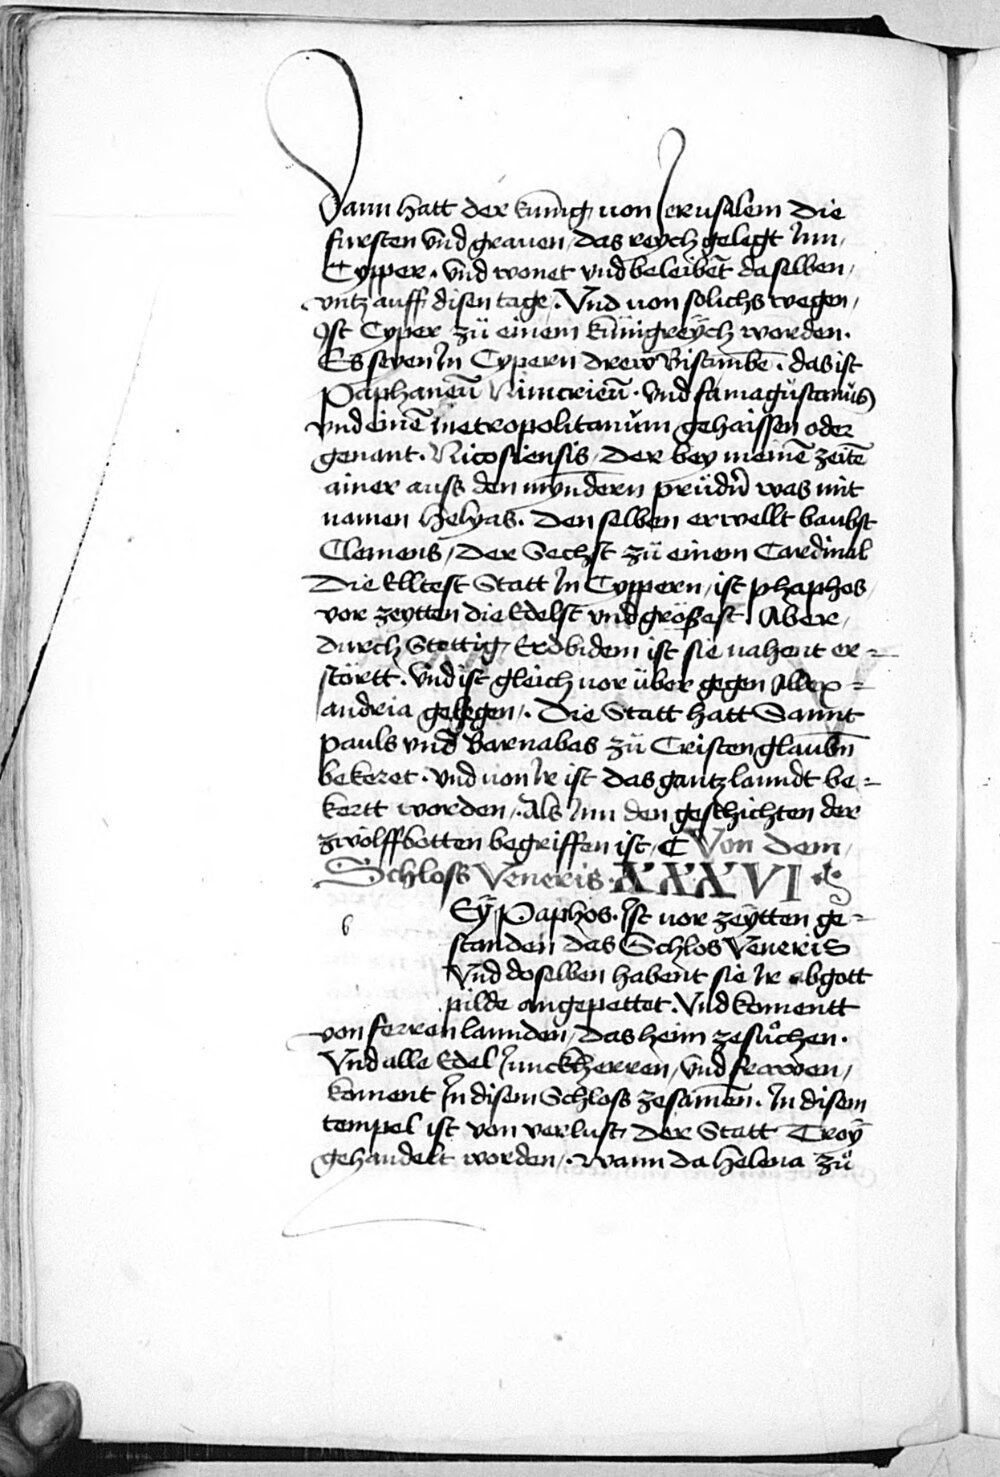 Dann hatt der kunig von Jerusalem die
fursten vnd grauen, das reych gelegt Inn,
Cypper. vnd wonet vnd beleibet daselben,
vntz auff disen tage. Vnd von solichs wegen,
Ist Cyper zü einem künigreÿch worden.
Es seyen In Cypern drew Bistumbe. das ist
Paphaneū Nimcrieū. vnd famagustanus
vnd einē metropolitanum gehaissen oder
genant. Nicosiensis, der bey meinē zeitē
ainer auss den myndern prüdn̄ was mit
namen Helyas. den selben erwellt baubst
Clemens, der Sechst zü einem Cardinal
Die Elltest Statt In Cyppern, ist phaphos,
vor zeytten die Edelst vnd größest. Aber,
durch Stettig, Erdbidem ist sie nahent er=
störtt. vnd ist gleich vor über gegen Allex=
andria gelegen. Die Statt hatt Sannt
pauls vnd Barnabas zü Cristen glaubn̄
bekeret. vnd von Ir ist das gantz lanndt be=
kertt worden. Als Inn den geschichten der
zwölffbotten begriffen ist, C Von dem,
Schloss Veneris. XXXVI
b EŸ Paphos. Ist vor zeÿtten ge=
standen das Schlos Veneris
Vnd doselben habent sie Ir abgott
pilde angepettet. Vnd komentt
von ferren lannden, das heim zesůchen.
Vnd alle Edel Junckherren, vnd frawen,
koment In disem Schloss zesamen. In disem
tempel ist von verlust der Statt Troÿ
gehandelt worden. wann da Helena zů